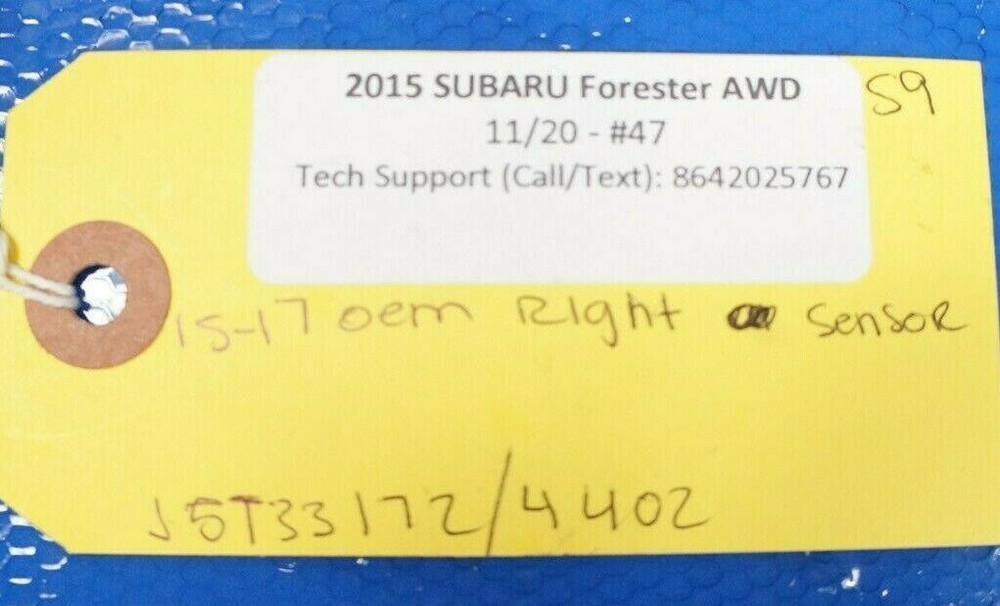 2015 SUBARU Forester AWD
S9
11/20 - #47
Tech Support (Call/Text): 8642025767
15-17 oem Right sensor
J5T33172/4402